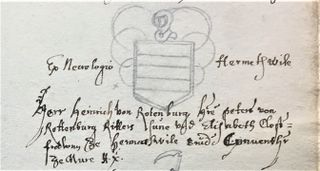 Ex Necrologio Hermetswile
Herr Heinrich von Rotenburg Hrn peters von
Rottenburg Ritters sune vnd Elisabeth Clost-
frowen Ze Hermoswile vnd Conventhr
Ze Mure